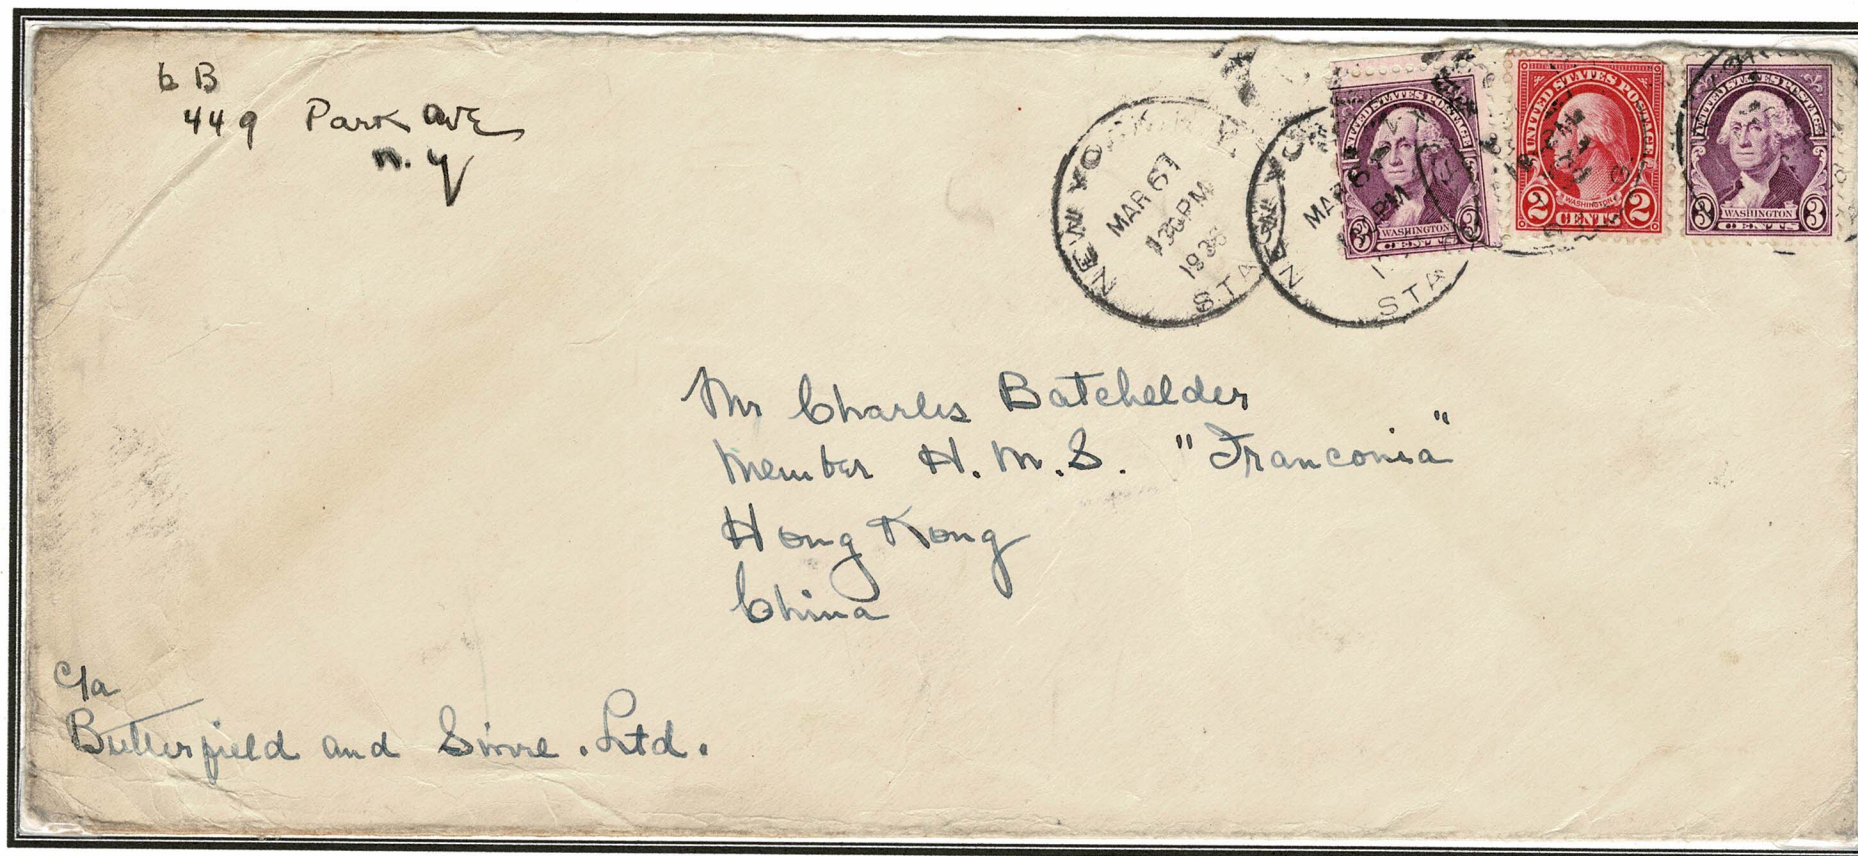 6 B
449 Park Ave
N. Y
NEW YORK, N.Y.
MAR 6
1 30 PM
1936
STA
NEW YO
MAR 6
PM
STA
UNITED STATES POSTAGE
WASHINGTON
3 CENTS 3
UNITED STATES POSTAGE
WASHINGTON
2 CENTS 2
UNITED STATES POSTAGE
WASHINGTON
3 CENTS 3
Mr Charles Batchelder
Member H.M.S. "Franconia"
Hong Kong
China
c/a
Butterfield and Swire. Ltd.